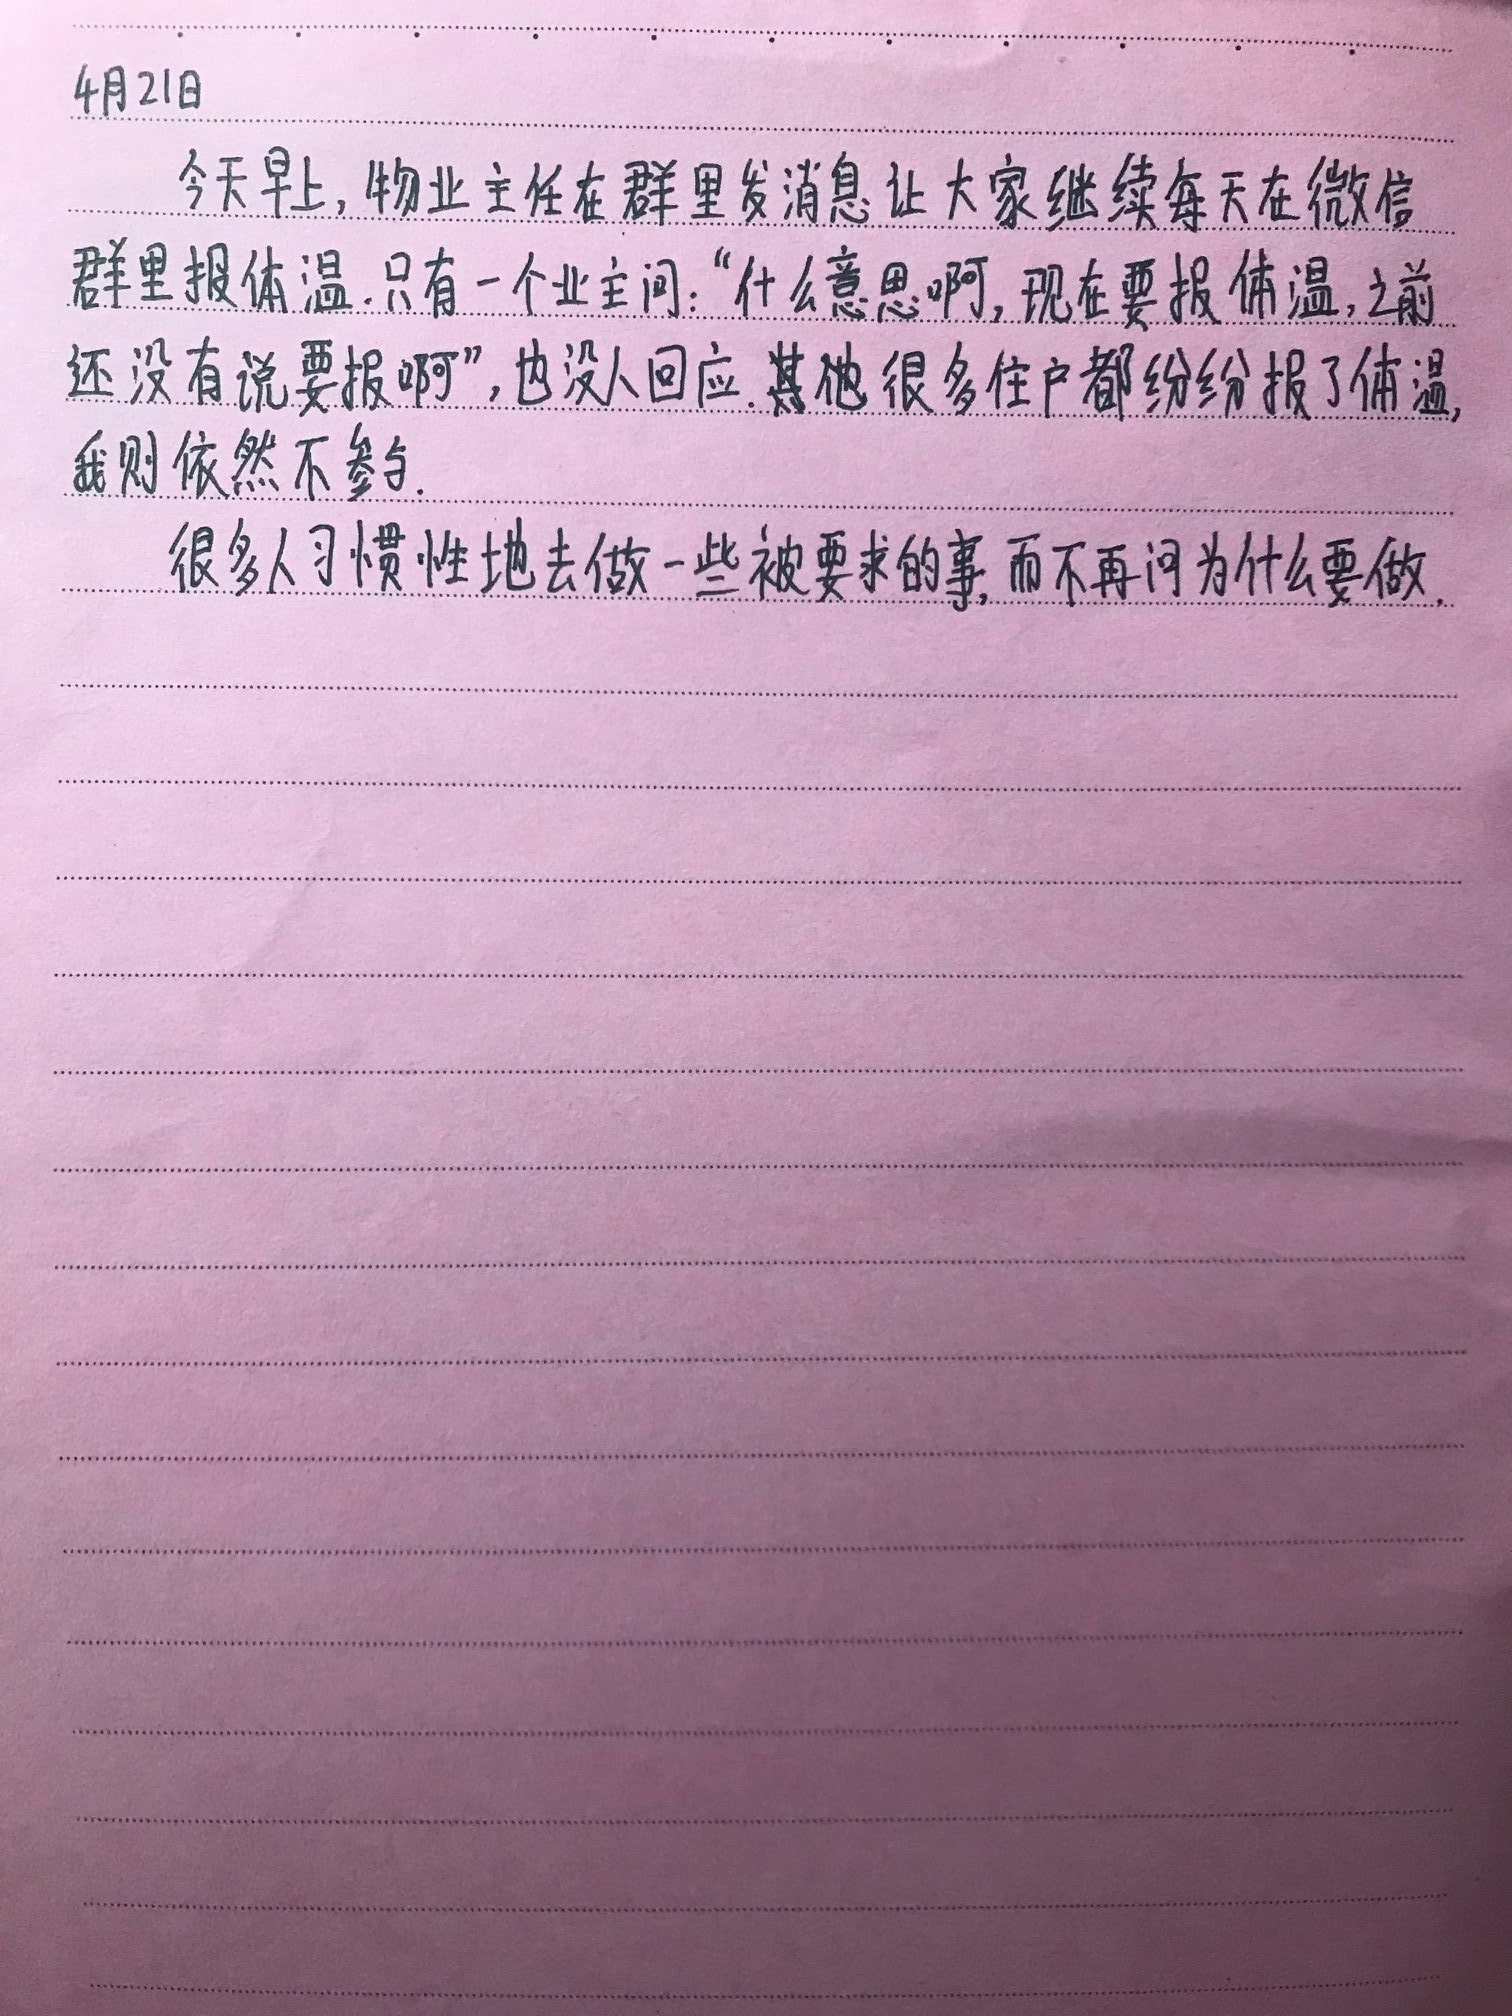 4月21日
今天早上,物业主任在群里发消息让大家继续每天在微信
群里报体温.只有一个业主问:“什么意思啊,现在要报体温,之前
还没有说要报啊”,也没人回应.其他很多住户都纷纷报了体温,
我则依然不参与.
很多人习惯性地去做一些被要求的事,而不再问为什么要做.